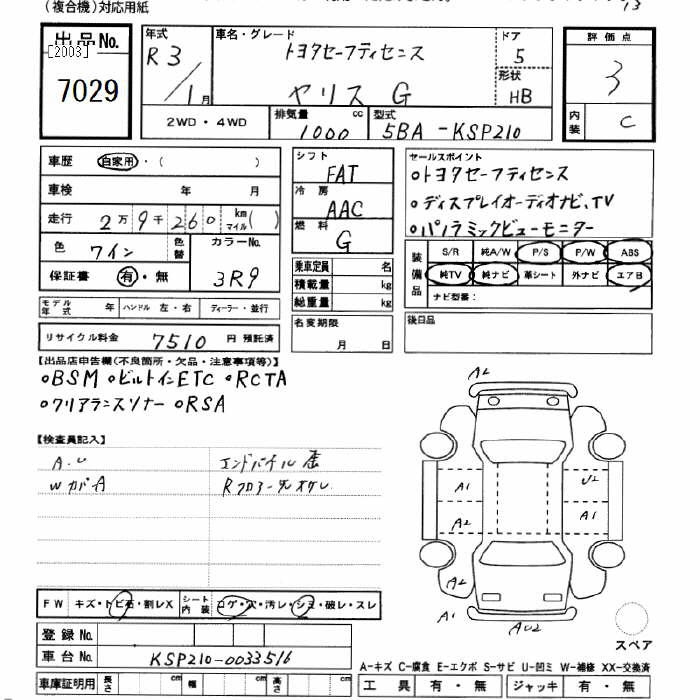 (複合機)対応用紙
13
出品No.
[2003]
7029
年式
R3/1月
車名・グレード
トヨタセーフティセンス
ヤリス G
ドア
5
形状
HB
評価点
3
内装
C
2WD・4WD
排気量 cc
1000
型式
5BA-KSP210
車歴 自家用・( )
車検 年 月
走行 2万9千260 km マイル( )
色 ワイン 色替 カラーNo. 3R9
保証書 有・無
シフト FAT
冷房 AAC
燃料 G
乗車定員 名
積載量 kg
総重量 kg
セールスポイント
○トヨタセーフティセンス
○ディスプレイオーディオナビ、TV
○パノラミックビューモニター
装備品
S/R 純A/W P/S P/W ABS
純TV 純ナビ 革シート 外ナビ エアB
ナビ型番:
モデル年式 年 ハンドル 左・右 ディーラー・並行
リサイクル料金 7510 円 預託済
名変期限 月 日
後日品
【出品店申告欄(不良箇所・欠品・注意事項等)】
○BSM ○ビルトインETC ○RCTA
○クリアランスソナー ○RSA
【検査員記入】
A・U
WカバーA
A2
A1
U2
A2
A1
A2
A1
AU2
FW キズ・トビ石・割レX シート内装 コゲ・穴・汚レ・シミ・破レ・スレ
登録No.
車台No. KSP210-0033516
車庫証明用 長さ cm 幅 cm 高さ cm
スペア
A-キズ C-腐食 E-エクボ S-サビ U-凹ミ W-補修 XX-交換済
工具 有・無 ジャッキ 有・無